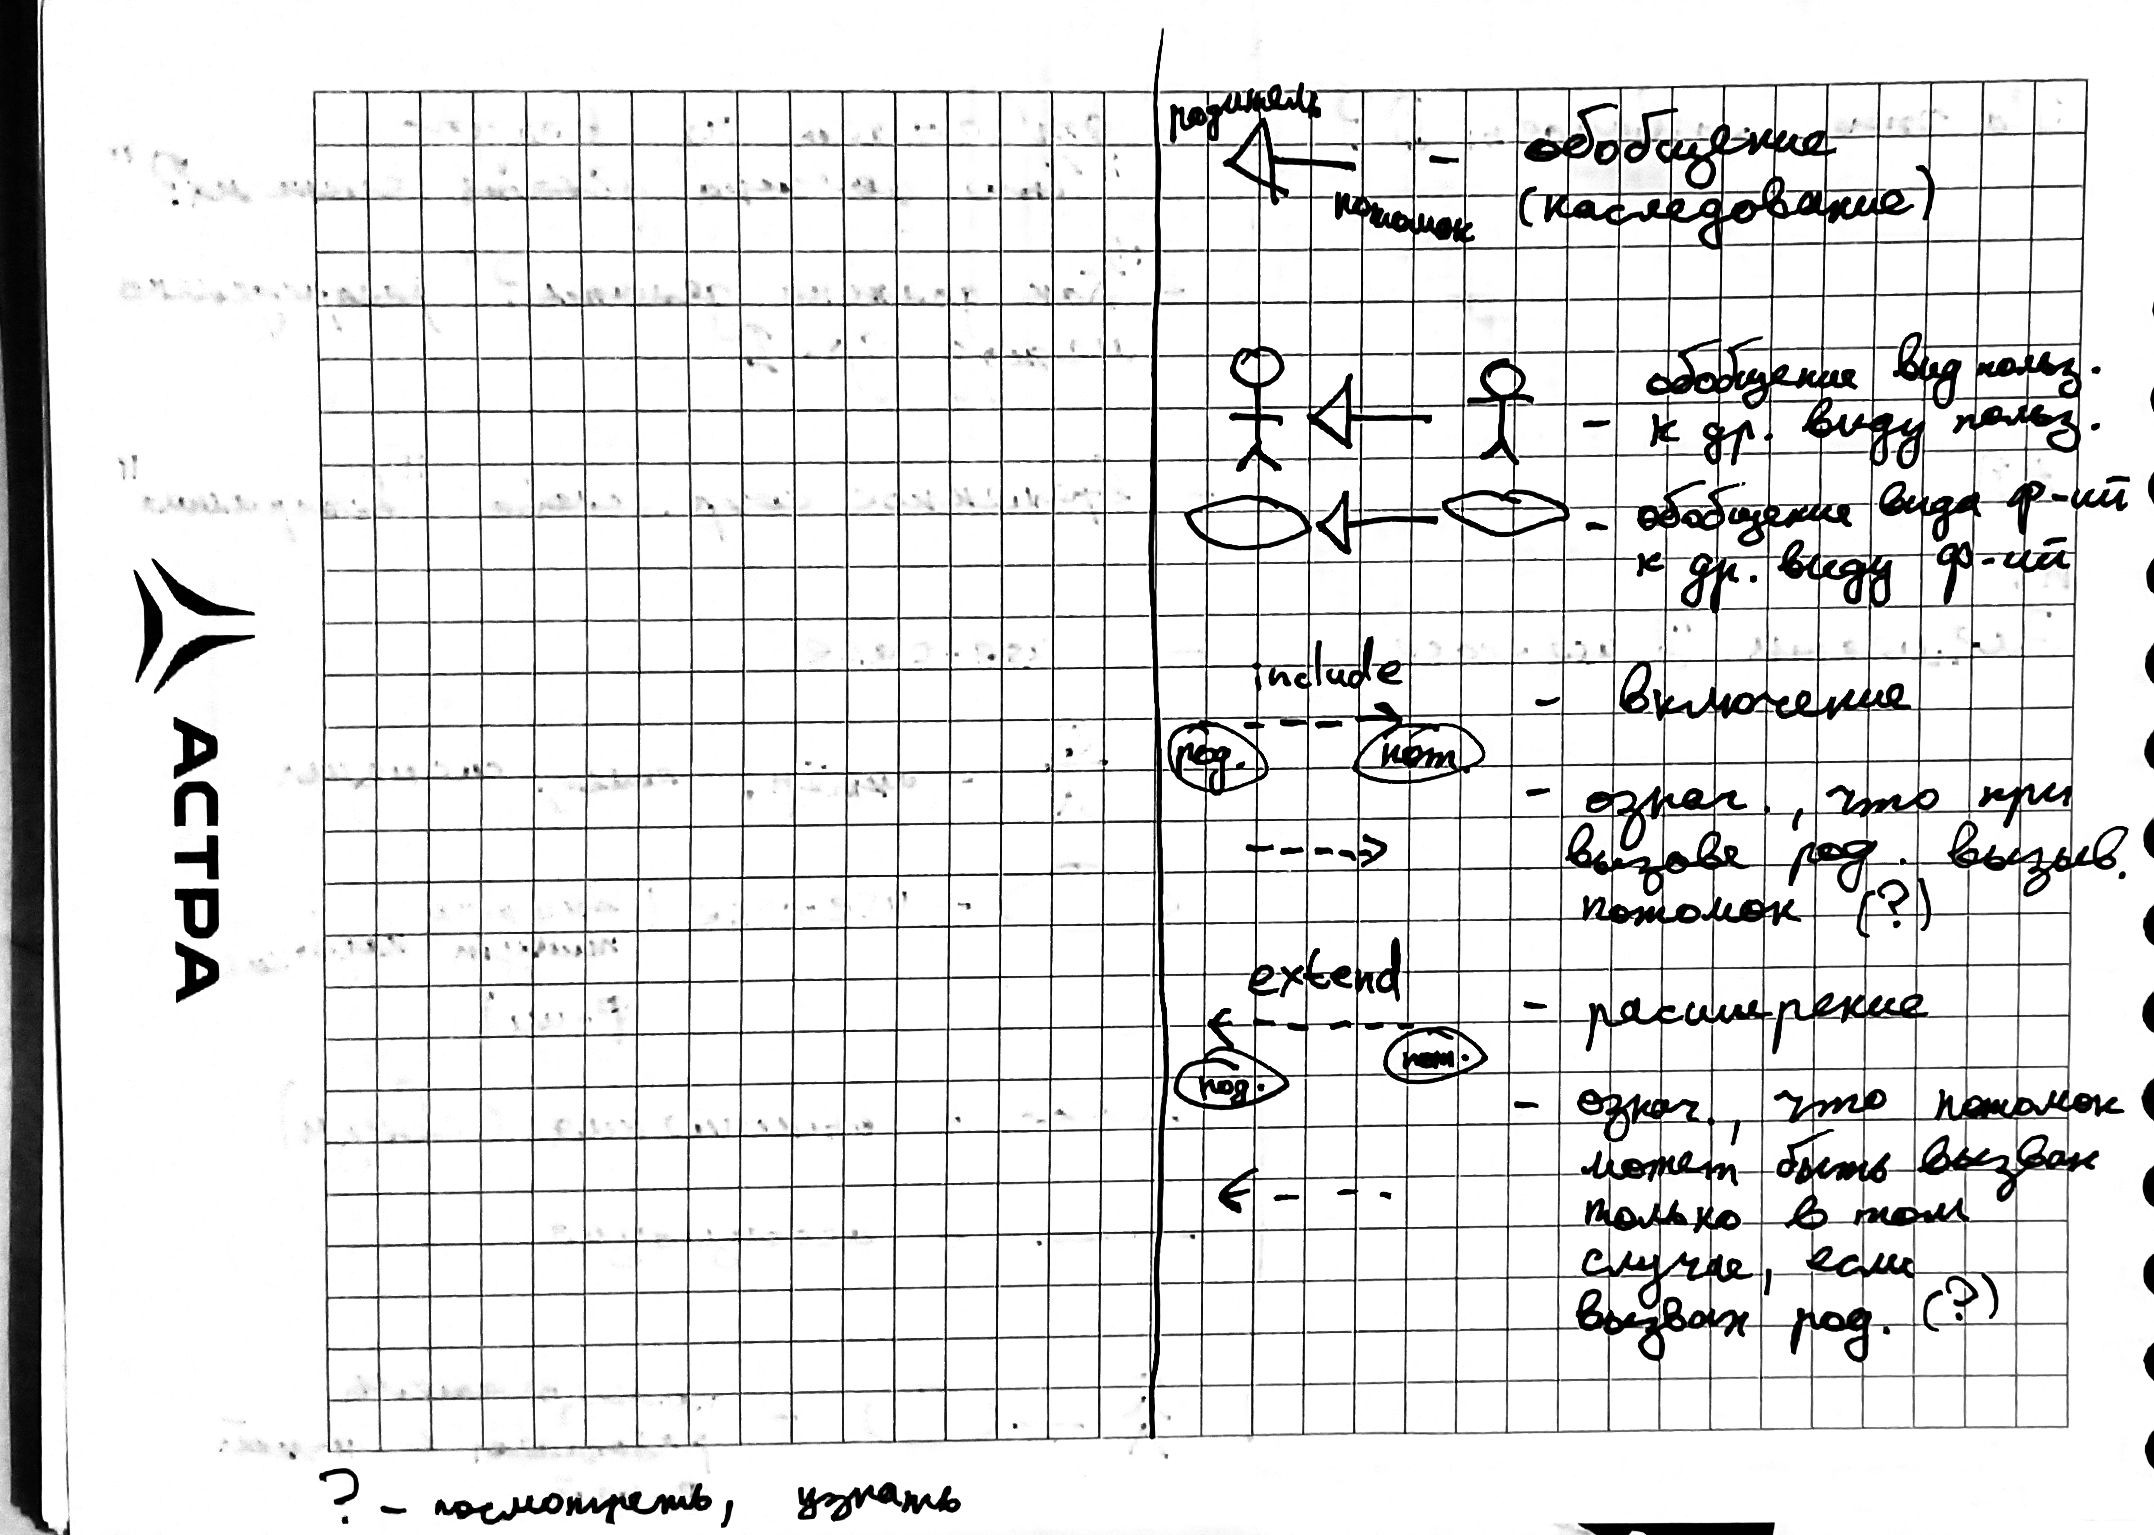 родитель
- обобщение
потомок (наследование)
обобщение вид польз.
- к др. виду польз.
- обобщение вида ф-ий
к др. виду ф-ий
include
- включение
род. пот.
- означ., что при
вызове род. вызыв.
потомок (?)
extend
- расширение
пот.
род.
- означ., что потомок
может быть вызван
только в том
случае, если
вызван род. (?)
? - посмотреть, узнать
АСТРА